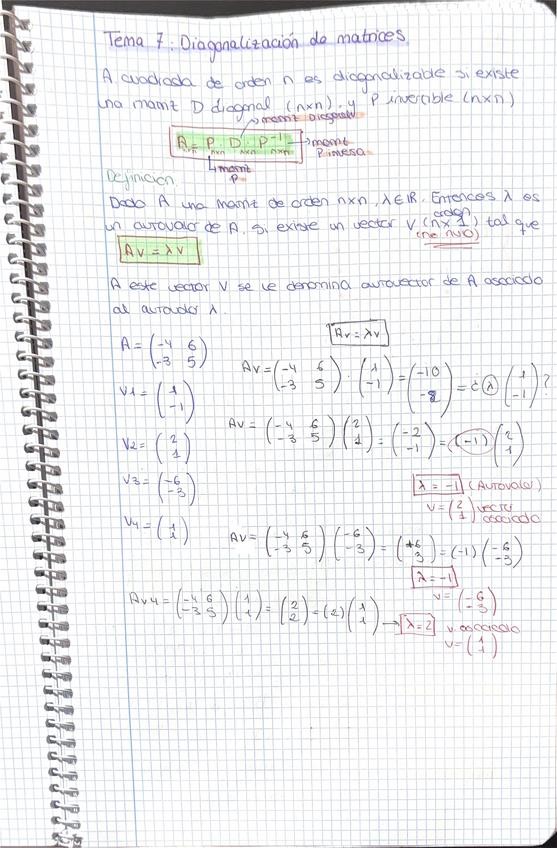 Tema 7: Diagonalización de matrices.
A cuadrada de orden n es diagonalizable si existe
una matriz D diagonal (nxn), y P invertible (nxn)
→ matriz Diagonal
A = P · D · P⁻¹ → matriz P inversa
nxn nxn nxn nxn
↳ matriz P
Definición.
Dada A una matriz de orden nxn, λ∈ℝ. Entonces λ es
un autovalor de A, si existe un vector V (orden nx1) tal que
(no nulo)
Av = λv
A este vector V se le denomina autovector de A asociado
al autovalor λ.
Av = λv
A = (-4 6; -3 5)
Av = (-4 6; -3 5) · (1; -1) = (-10; -8) = ¿λ (1; -1)?
V1 = (1; -1)
Av = (-4 6; -3 5) (2; 1) = (-2; -1) = (-1) (2; 1)
V2 = (2; 1)
λ = -1 (Autovalor)
V = (2; 1) vector asociado
V3 = (-6; -3)
V4 = (1; 1)
Av = (-4 6; -3 5) (-6; -3) = (+6; 3) = (-1) (-6; -3)
λ = -1
V = (-6; -3)
Av4 = (-4 6; -3 5) (1; 1) = (2; 2) = (2) (1; 1) → λ = 2 v asociado
V = (1; 1)